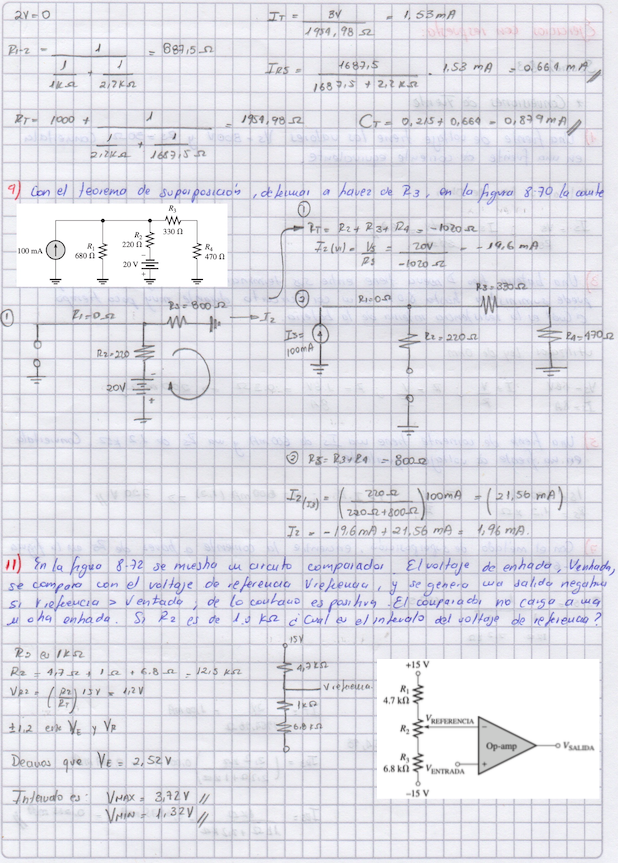 2V=0
R1-2 = 1 / (1/1KΩ + 1/2,7KΩ) = 887,5 Ω
RT= 1000 + 1 / (1/2,2KΩ + 1/1687,5 Ω) = 1954,98 Ω
IT = 3V / 1954,98 Ω = 1,53mA
IR5 = 1687,5 / (1687,5 + 2,2KΩ) . 1,53 mA = 0,664 mA
CT = 0,215 + 0,664 = 0,879 mA
9) Con el teorema de superposición, determinar a travez de R3, en la figura 8-70 la corriente
100 mA
R1
680 Ω
R2
220 Ω
20 V
R3
330 Ω
R4
470 Ω
①
RT= R2 + R3 + R4 = -1020 Ω
I2(V1) = VS / RS = 20V / -1020 Ω = -19,6 mA
①
R1=0Ω
R3 = 800Ω
I2
R2=220
20V
②
R1=0Ω
R3 = 330Ω
IS= 100mA
R2 = 220Ω
R4=470Ω
② RS= R3+R4 = 800Ω
I2(IS) = (220Ω / 220Ω + 800Ω) 100mA = (21,56 mA)
I2 = -19,6mA + 21,56 mA = 1,96 mA.
11) En la figura 8.72 se muestra un circuito comparador. El voltaje de entrada, Ventrada,
se compara con el voltaje de referencia Vreferencia, y se genera una salida negativa
si Vreferencia > Ventada, de lo contrario es positiva. El comparador no carga a una
u otra entrada. Si R2 es de 1.0 KΩ ¿Cual es el intervalo del voltaje de referencia?
R2 es 1KΩ
R2 = 4,7 Ω + 1 Ω + 6.8 Ω = 12,5 KΩ
VR2 = (R2 / RT) 15V = 1,2V
±1.2 entre VE y VR
Decimos que VE = 2,52V
Intervalo es: VMAX = 3,72V
VMIN = 1,32V
15V
4,7KΩ
Vreferencia
1KΩ
6.8KΩ
+15 V
R1
4.7 kΩ
R2
VREFERENCIA
Op-amp
VSALIDA
R3
6.8 kΩ
VENTRADA
-15 V